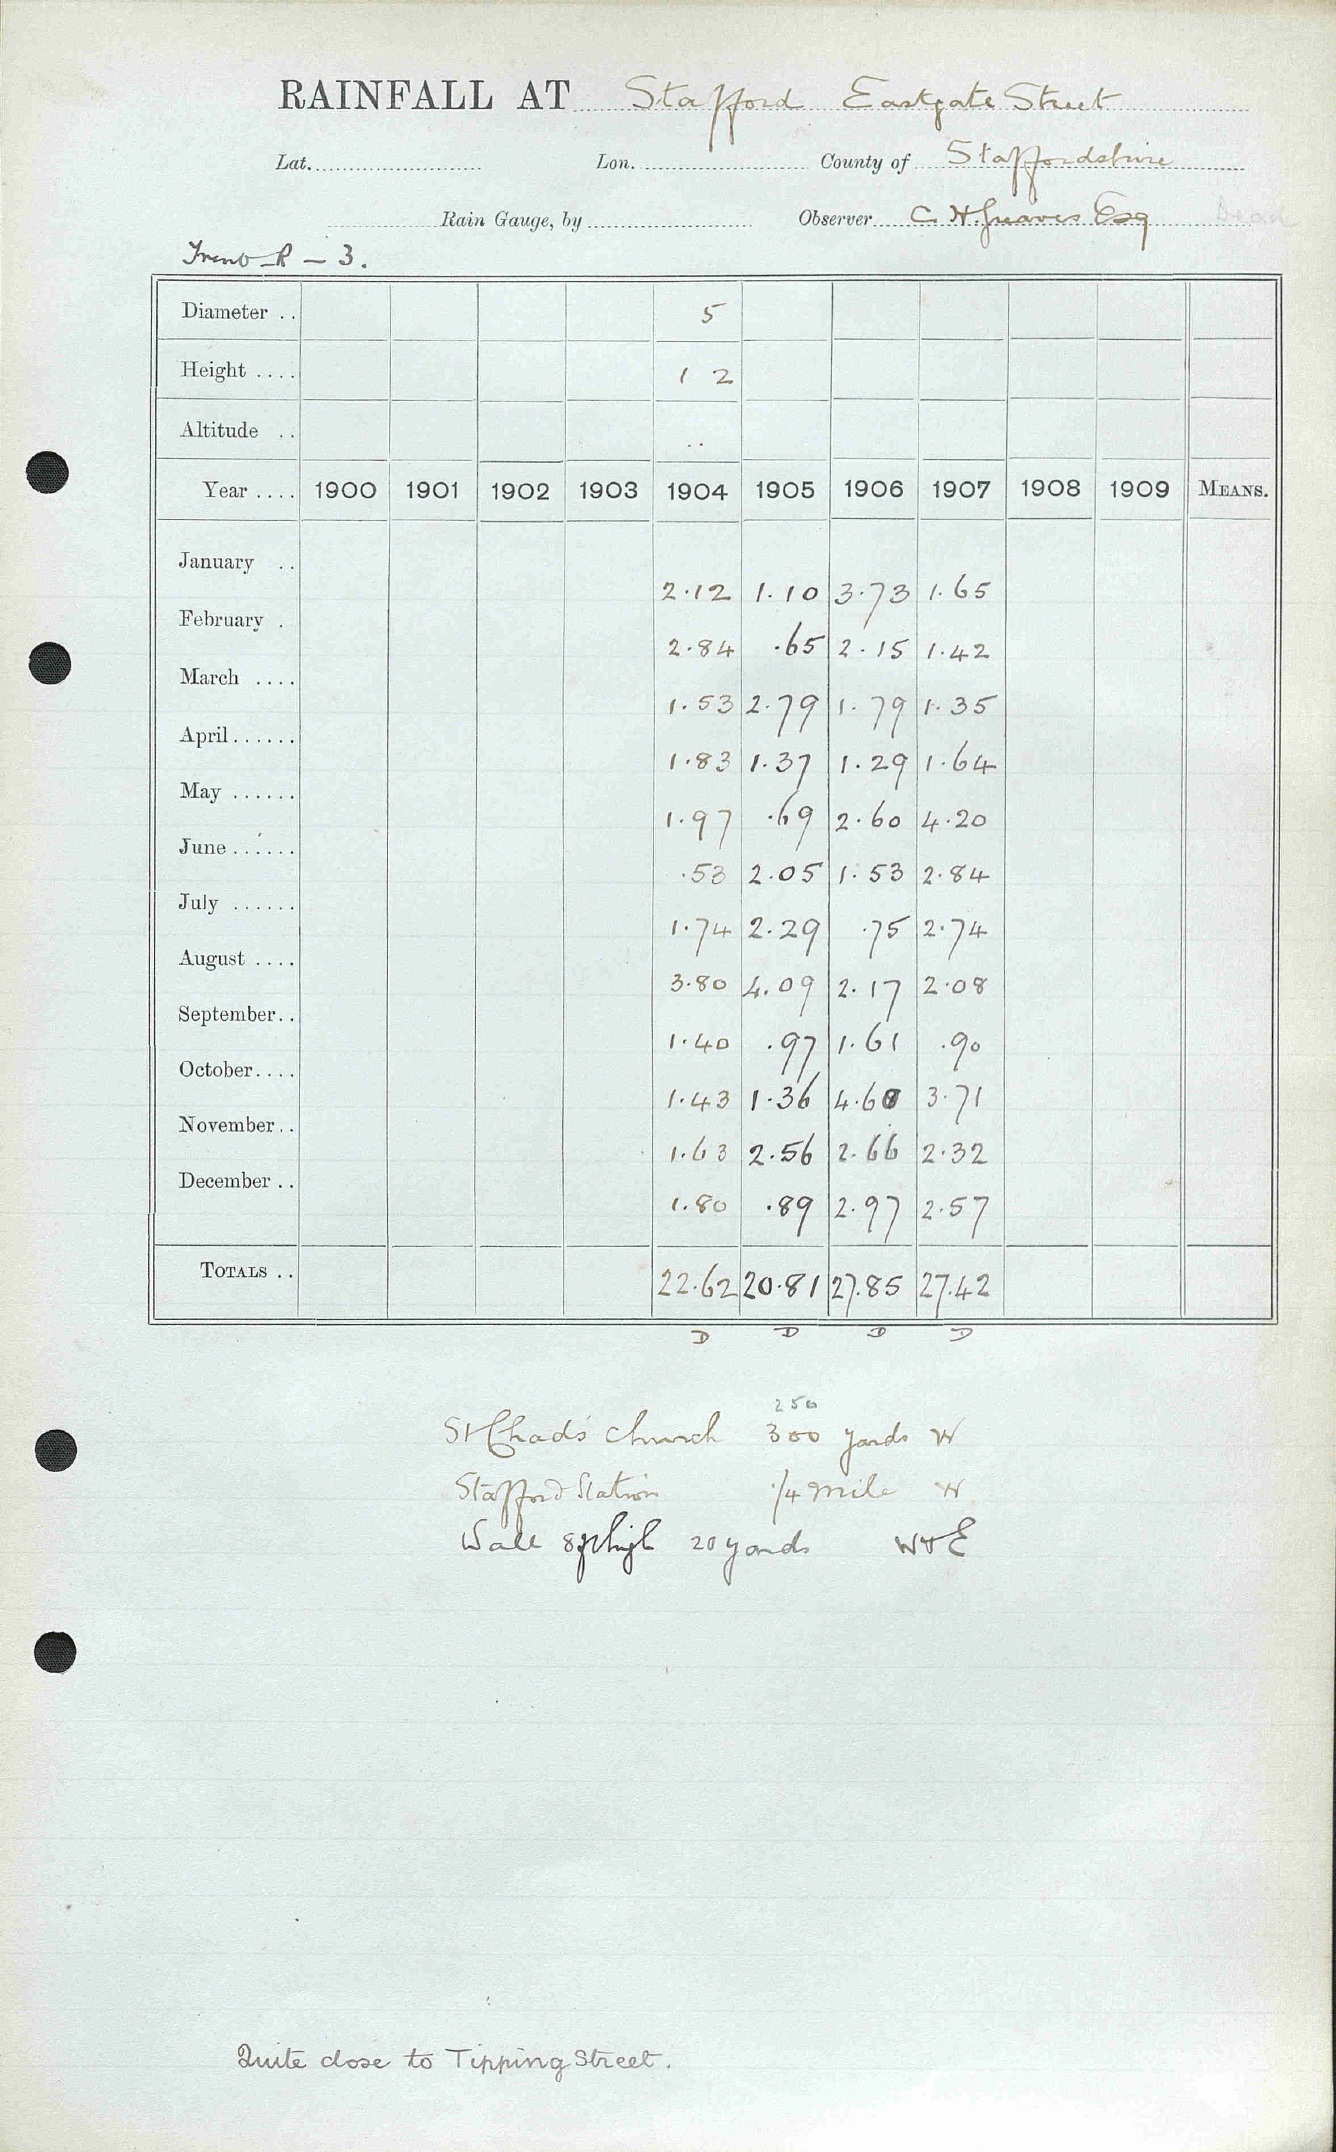 RAINFALL AT Stafford Eastgate Street
Lat. Lon. County of Staffordshire
Rain Gauge, by Observer C. H. Greaves Esq Dead
Trent R – 3.
Diameter .. 5
Height .... 1 2
Altitude .. ..
Year .... 1900 1901 1902 1903 1904 1905 1906 1907 1908 1909 MEANS.
January .. 2.12 1.10 3.73 1.65
February . 2.84 .65 2.15 1.42
March .... 1.53 2.79 1.79 1.35
April...... 1.83 1.37 1.29 1.64
May ...... 1.97 .69 2.60 4.20
June...... .53 2.05 1.53 2.84
July ...... 1.74 2.29 .75 2.74
August .... 3.80 4.09 2.17 2.08
September.. 1.40 .97 1.61 .90
October.... 1.43 1.36 4.60 3.71
November.. 1.63 2.56 2.66 2.32
December .. 1.80 .89 2.97 2.57
TOTALS .. 22.62 20.81 27.85 27.42
D D D D
250
St Chads' Church 300 yards W
Stafford Station 1/4 mile W
Wall 8ft high 20 yards W & E
Quite close to Tipping Street.